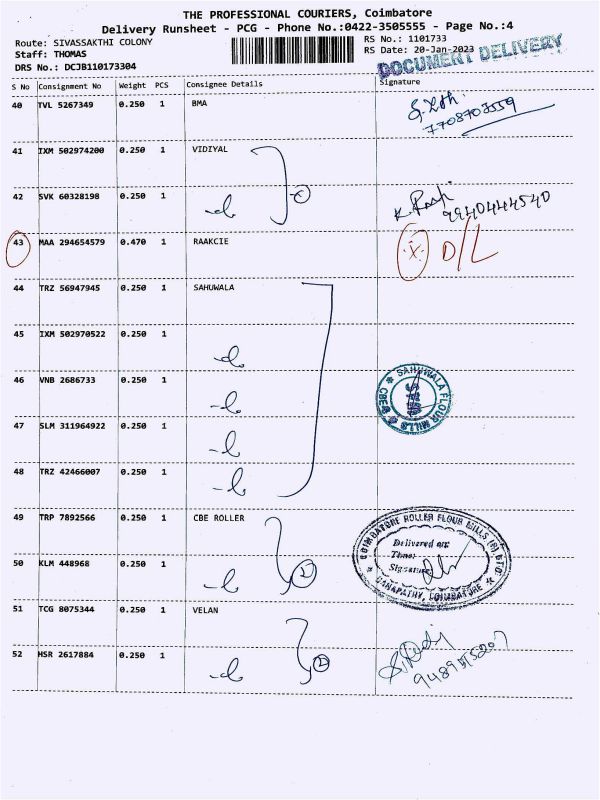 THE PROFESSIONAL COURIERS, Coimbatore
Delivery Runsheet - PCG - Phone No.:0422-3505555 - Page No.:4
Route: SIVASSAKTHI COLONY RS No.: 1101733
Staff: THOMAS RS Date: 20-Jan-2023
DRS No.: DCJB110173304 DOCUMENT DELIVERY
S No Consignment No Weight PCS Consignee Details Signature
40 TVL 5267349 0.250 1 BMA
7708703559
41 IXM 502974200 0.250 1 VIDIYAL
42 SVK 60328198 0.250 1
9940444540
43 MAA 294654579 0.470 1 RAAKCIE D/L
44 TRZ 56947945 0.250 1 SAHUWALA
45 IXM 502970522 0.250 1
46 VNB 2686733 0.250 1
SAHUWALA FLOUR MILLS
CBE
47 SLM 311964922 0.250 1
48 TRZ 42466007 0.250 1
49 TRP 7892566 0.250 1 CBE ROLLER
COIMBATORE ROLLER FLOUR MILLS (P) LTD.
Delivered on:
Time:
Signature
GANAPATHY, COIMBATORE
50 KLM 448968 0.250 1 2
51 TCG 8075344 0.250 1 VELAN
52 HSR 2617884 0.250 1 2